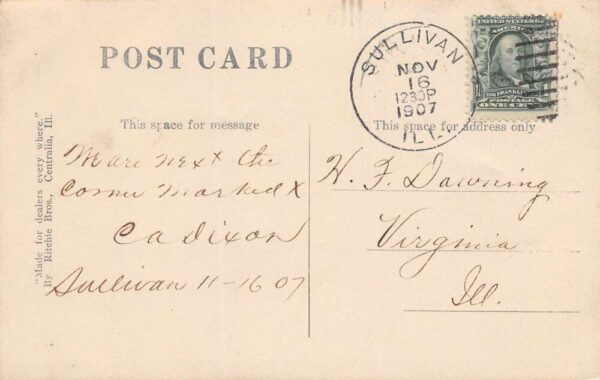 POST CARD
SULLIVAN
NOV
16
1230P
1907
ILL.
UNITED STATES OF AMERICA
FRANKLIN
POSTAGE
ONE CENT
This space for message
This space for address only
"Made for dealers every where."
By Ritchie Bros., Centralia, Ill.
We are next the
Corner marked X
C A Dixon
Sullivan 11-16 07
H. F. Downing
Virginia
Ill.